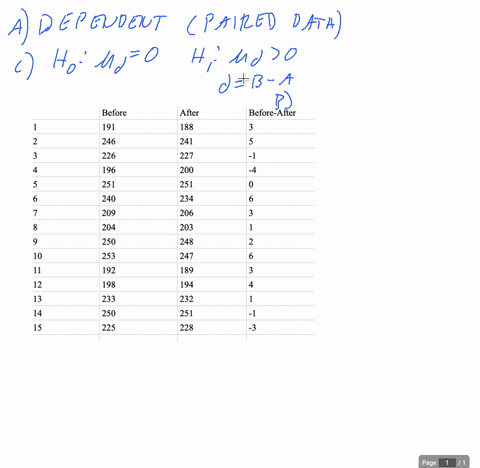 A) DEPENDENT (PAIRED DATA)
C) H₀: μd=0 H₁: μd>0
d=B-A
B)
Before After Before-After
1 191 188 3
2 246 241 5
3 226 227 -1
4 196 200 -4
5 251 251 0
6 240 234 6
7 209 206 3
8 204 203 1
9 250 248 2
10 253 247 6
11 192 189 3
12 198 194 4
13 233 232 1
14 250 251 -1
15 225 228 -3
Page 1 / 1